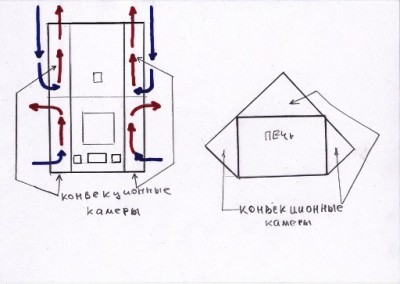 конвекционные
камеры
печь
конвекционные
камеры